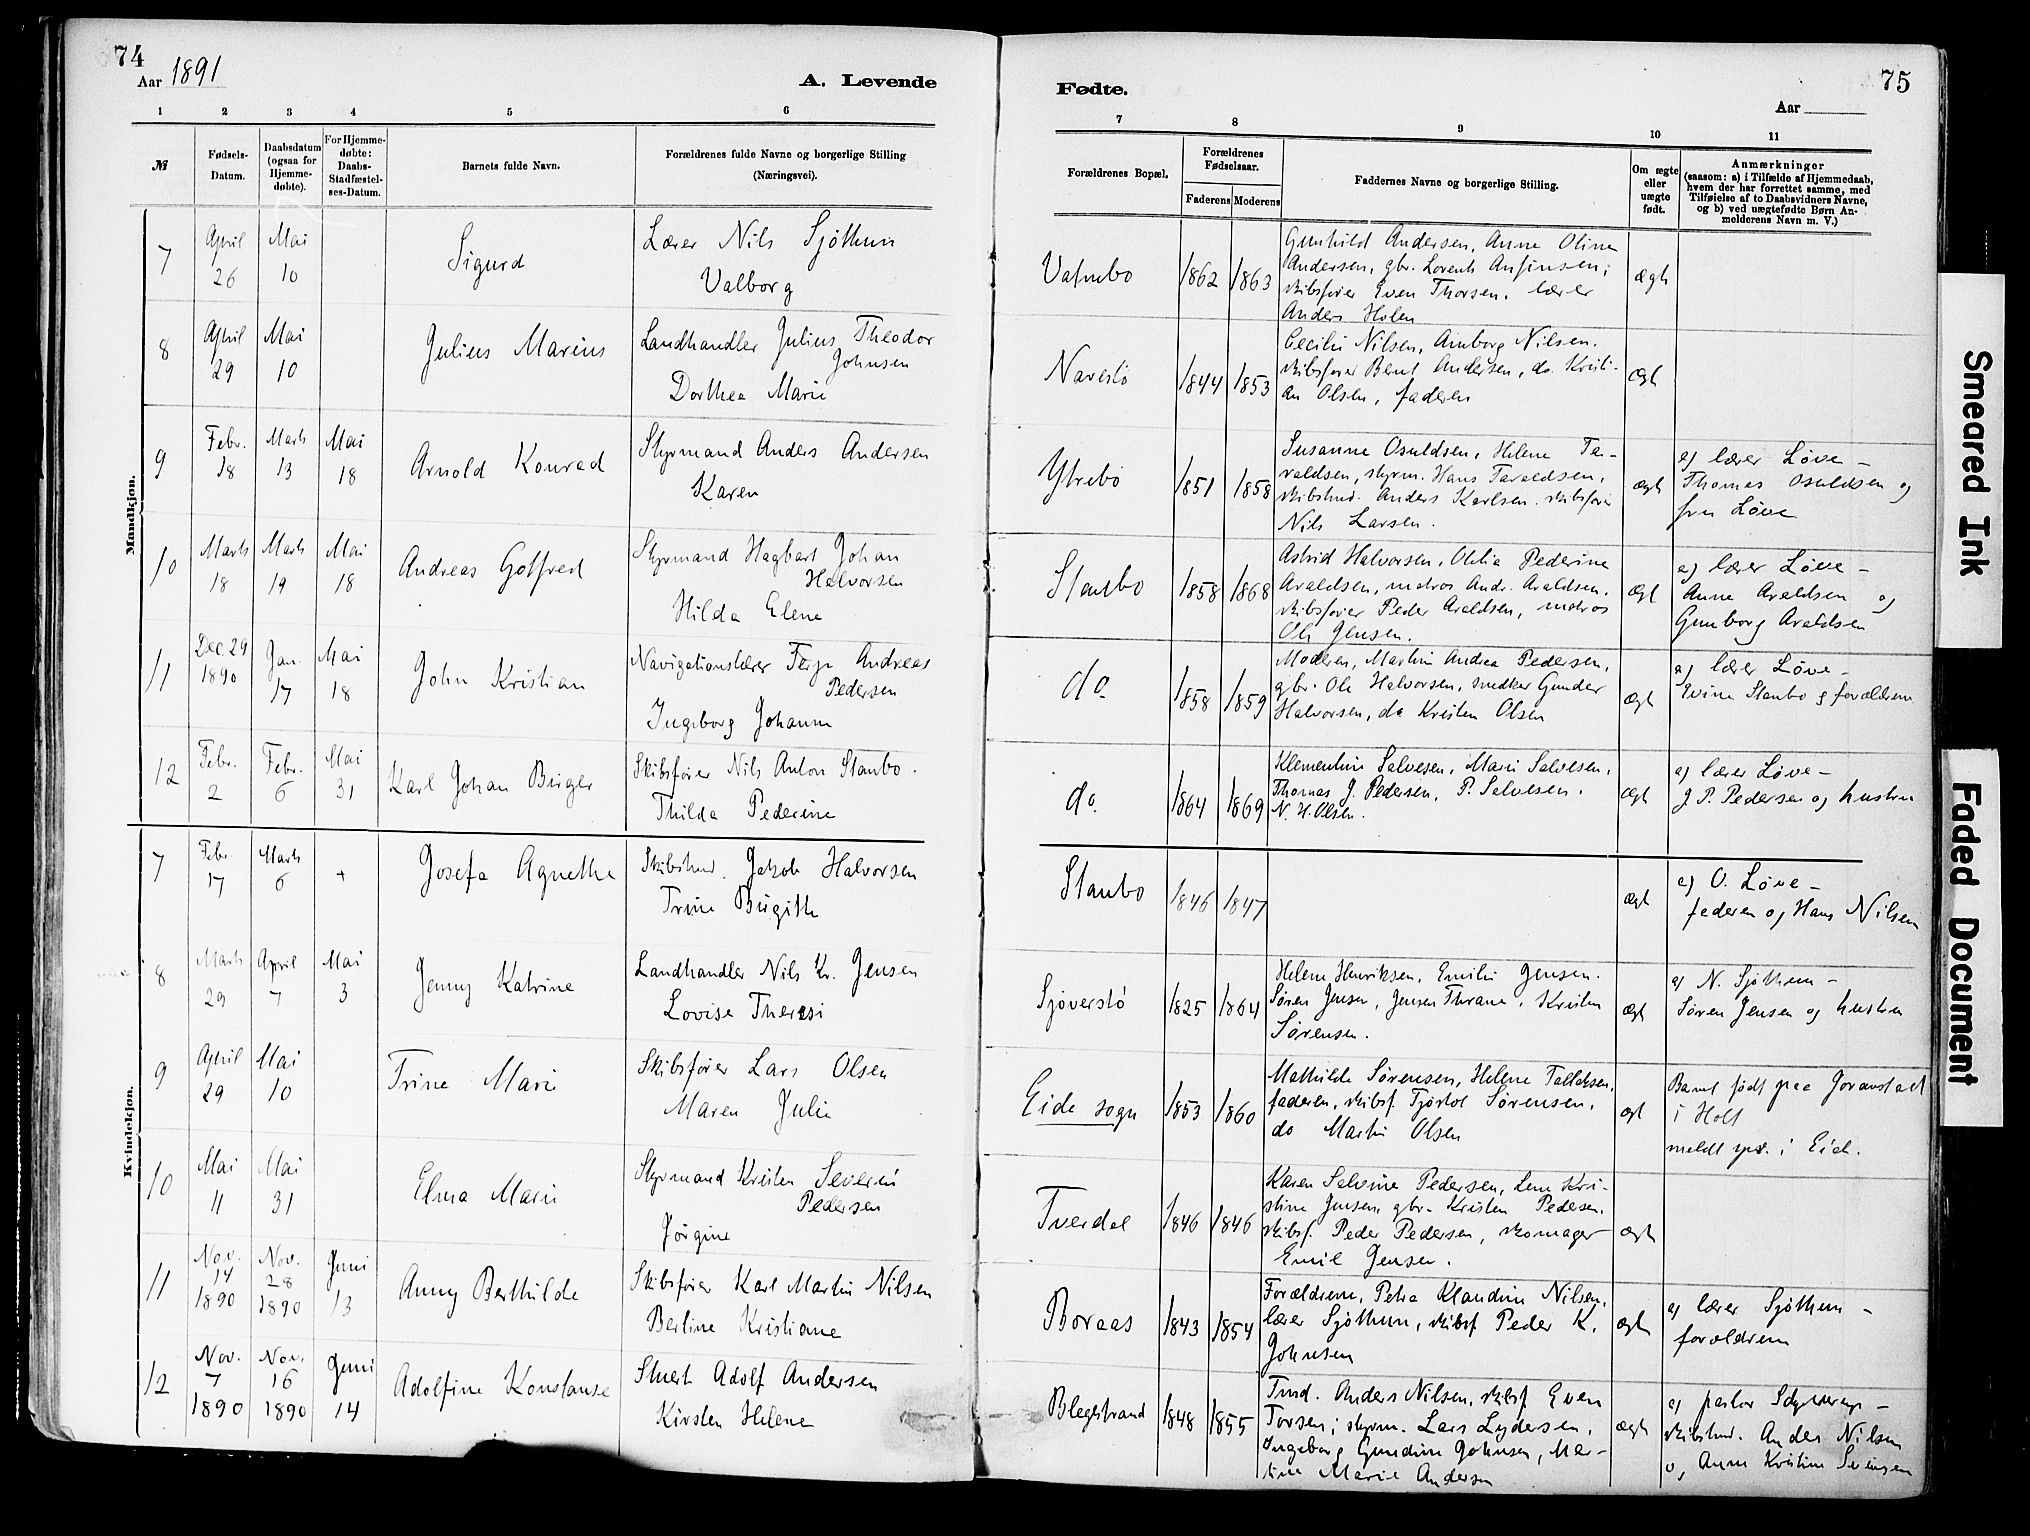 74
Aar 1891
A. Levende
1 2 3 4 5 6
№
Fødsels-Datum.
Daabsdatum (ogsaa for Hjemme-døbte).
For Hjemme-døbte: Daabs-Stadfæstel-ses-Datum.
Barnets fulde Navn.
Forældrenes fulde Navne og borgerlige Stilling
(Næringsvei).
Mandkjøn.
7 April 26 Mai 10 Sigurd
Lærer Nils Sjøthun
Valborg
8 April 29 Mai 10 Julius Marius
Landhandler Julius Theodor
Johnsen
Dorthea Marie
9 Febr. 18 Marts 13 Mai 18 Arnold Konrad
Styrmand Anders Andersen
Karen
10 Marts 18 Marts 19 Mai 18 Andreas Gotfred
Styrmand Hagbart Johan
Halvorsen
Hilda Elene
11 Dec. 29 1890 Jan. 17 Mai 18 John Kristian
Navigationslærer Terje Andreas
Pedersen
Ingeborg Johanne
12 Febr. 2 Febr. 6 Mai 31 Karl Johan Birger
Skibsfører Nils Anton Staubo.
Thilda Pederine
Kvindekjøn.
7 Febr. 17 Marts 6 + Josefa Agnethe
Skibstmd. Jakob Halvorsen
Trine Birgitte
8 Marts 29 April 7 Mai 3 Jenny Katrine
Landhandler Nils Kr. Jensen
Lovise Theresi
9 April 29 Mai 10 Trine Marie
Skibsfører Lars Olsen
Maren Julie
10 Mai 11 Mai 31 Elma Marie
Styrmand Kristen Severin
Pedersen
Jørgine
11 Nov. 14 1890 Nov. 28 1890 Juni 13 Anny Berthilde
Skibsfører Karl Martin Nilsen
Berline Kristiane
12 Nov. 7 1890 Nov. 16 1890 Juni 14 Adolfine Konstanse
Stuert Adolf Andersen
Kirsten Helene
75
Fødte.
Aar
7 8 9 10 11
Forældrenes Bopæl.
Forældrenes Fødselsaar.
Faderens Moderens
Faddernes Navne og borgerlige Stilling.
Om ægte eller uægte født.
Anmærkninger
(saasom: a) i Tilfælde af Hjemmedaab,
hvem der har forrettet samme, med
Tilføielse af to Daabsvidners Navne,
og b) ved uægtefødte Børn An-
melderens Navn m. V.)
Vatnebo 1862 1863
Gunhild Andersen, Anne Oline
Andersen, gbr. Lorents Anfinsen;
skibsfører Even Thorsen, lærer
Anders Holen
ægte
Navestø 1844 1853
Cecilie Nilsen, Amborg Nilsen.
skibsfører Bent Andersen, do. Kristi-
an Olsen, faderen
Ægt
Ytrebø 1851 1858
Susanne Osuldsen, Helene Ta-
raldsen, styrm. Hans Taraldsen,
skibstmd. Anders Karlsen. skibsfører
Nils Larsen.
ægt
a) lærer Løve –
Thomas Osuldsen og
fru Løve
Staubo 1858 1868
Astrid Halvorsen, Otilia Pederine
Araldsen, matros Andr. Araldsen,
skibsfører Peder Araldsen, matros
Ole Jensen.
ægt
a) lærer Løve –
Anne Araldsen og
Gunborg Araldsen
do. 1858 1859
Moderen, Martine Andrea Pedersen,
gbr. Ole Halvorsen, snedker Gunder
Halvorsen, do Kristen Olsen
ægt
a) lærer Løve –
Staubo og forældrene
do. 1864 1869
Klementine Salvesen, Marie Salvesen,
Thomas J. Pedersen, P. Salvesen.
N. H. Olsen.
ægt
a) lærer Løve –
J. P. Pedersen og hustru
Staubo 1846 1847
ægt
a) O. Løve –
faderen og Hans Nilsen
Sjøverstø 1825 1864
Helene Henriksen, Emilie Jensen.
Søren Jensen, Jensen Thrane, Kristen
Sørensen.
ægt
a) N. Sjøthun –
Søren Jensen og hustru
Eide sogn 1853 1860
Mathilde Sørensen, Helene Tallaksen,
faderen, skibsf. Tjøstol Sørensen,
do Martin Olsen
ægt
Barnet født paa Goranstad
i Holt
meldt spr. i Eide.
Tverdal 1846 1846
Karen Salvine Pedersen, Lene Kri-
stine Jensen, gbr. Kristen Pedersen,
skibsf. Peder Pedersen, skomager
Emil Jensen.
ægt
Boraas 1843 1854
Forældrene, Petra Klaudine Nilsen,
lærer Sjøthun, skibsf Peder K.
Johnsen
ægt
a) lærer Sjøthun –
forældrene
Blegestrand 1848 1855
Tmd. Anders Nilsen, skibsf Even
Torsen; styrm. Lars Lydersen,
Ingeborg Gundine Johnsen, Mar-
tine Marie Andersen
ægt
a) pastor –
skibstmd. Anders Nilsen
o, Anne Kristine
Smeared Ink
Faded Document